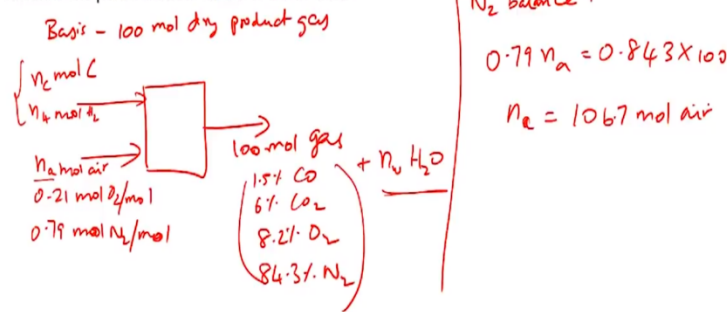 Basis - 100 mol dry product gas
n_c mol C
n_H mol H₂
n_a mol air
0.21 mol O₂/mol
0.79 mol N₂/mol
100 mol gas
+ n_v H₂O
1.5% CO
6% CO₂
8.2% O₂
84.3% N₂
N₂ balance :
0.79 n_a = 0.843 × 100
n_a = 106.7 mol air